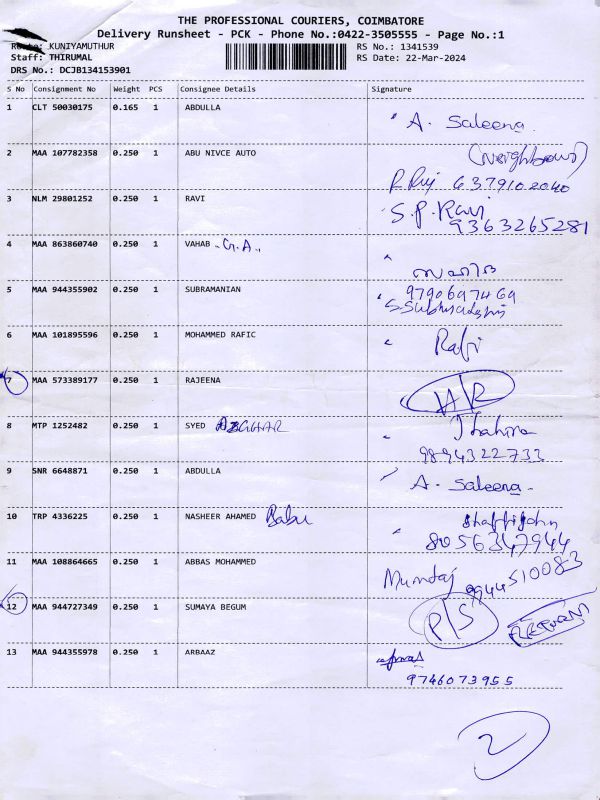 THE PROFESSIONAL COURIERS, COIMBATORE
Delivery Runsheet - PCK - Phone No.:0422-3505555 - Page No.:1
Route: KUNIYAMUTHUR
RS No.: 1341539
Staff: THIRUMAL
RS Date: 22-Mar-2024
DRS No.: DCJB134153901
S No Consignment No Weight PCS Consignee Details Signature
1 CLT 50030175 0.165 1 ABDULLA A. Saleena
2 MAA 107782358 0.250 1 ABU NIVCE AUTO (Neighbour)
6379102040
3 NLM 29801252 0.250 1 RAVI S.P. Ravi
9363265281
4 MAA 863860740 0.250 1 VAHAB - G.A.,
5 MAA 944355902 0.250 1 SUBRAMANIAN 9790697469
6 MAA 101895596 0.250 1 MOHAMMED RAFIC Rafi
7 MAA 573389177 0.250 1 RAJEENA
8 MTP 1252482 0.250 1 SYED
9894322733
9 SNR 6648871 0.250 1 ABDULLA A. Saleena
10 TRP 4336225 0.250 1 NASHEER AHAMED Babu
8056347944
11 MAA 108864665 0.250 1 ABBAS MOHAMMED Mumtaj 9944510083
12 MAA 944727349 0.250 1 SUMAYA BEGUM P/S
13 MAA 944355978 0.250 1 ARBAAZ
9746073955
2